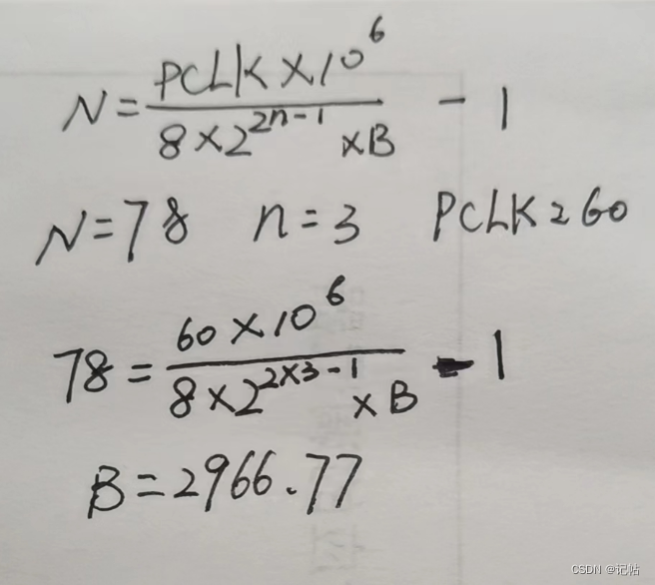 N = PCLK × 10^6 / (8 × 2^(2n-1) × B) - 1
N=78 n=3 PCLK=60
78 = 60 × 10^6 / (8 × 2^(2×3-1) × B) - 1
B=2966.77
CSDN @记帖